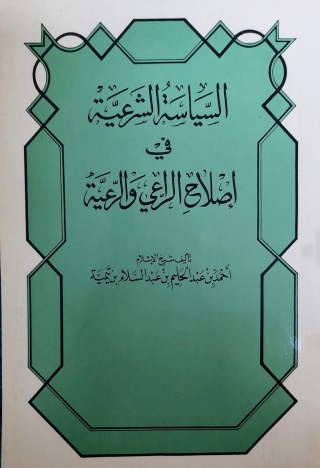 السِّيَاسَةُ الشَّرْعِيَّة
فِي
إصْلَاحِ الرَّاعِي وَالرَّعِيَّةِ
تأليف شيخ الإسلام
أحْمَد بْن عَبْد الحَليم بْن عَبْد السَّلام بْن تَيْمِيَة